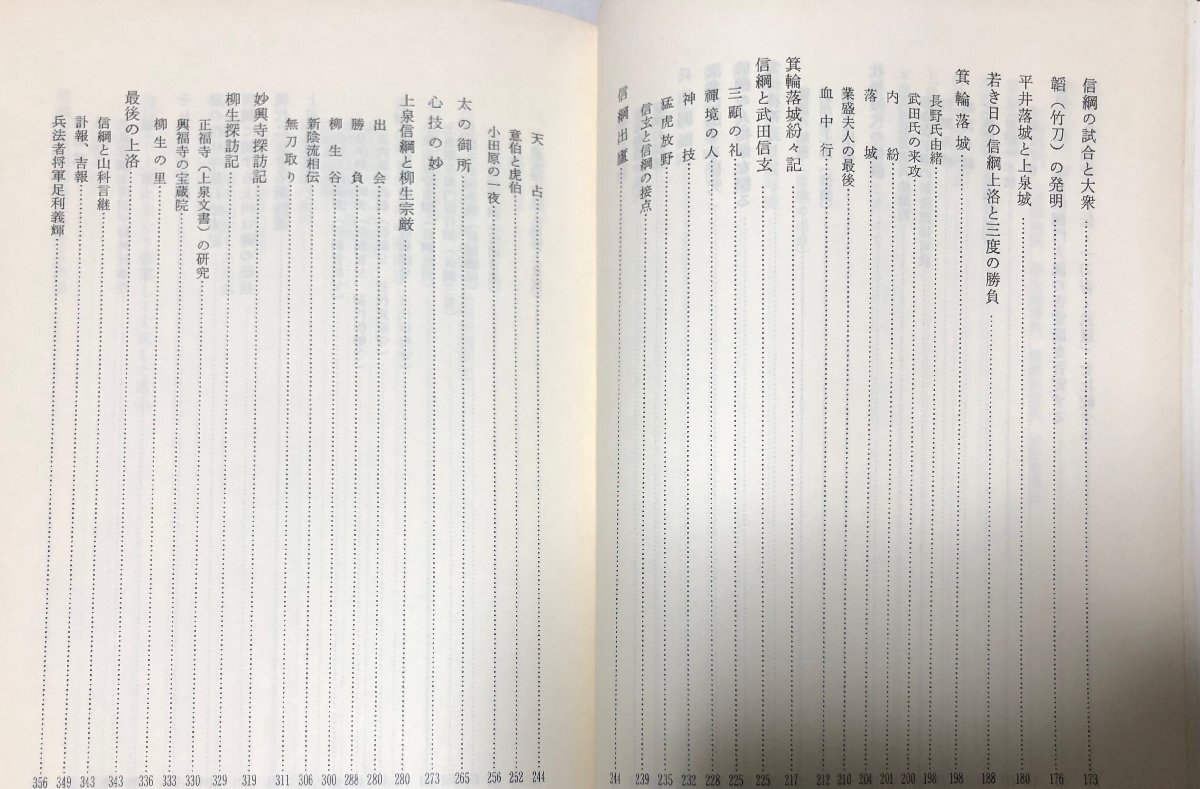 信綱の試合と大衆……173
韜(竹刀)の発明……176
平井落城と上泉城……180
若き日の信綱上洛と三度の勝負……188
箕輪落城……198
長野氏由緒……198
武田氏の来攻……200
内紛……201
落城……204
業盛夫人の最後……210
血中行……212
箕輪落城紛々記……217
信綱と武田信玄……225
三顧の礼……225
禪境の人……228
神技……232
猛虎放野……235
信玄と信綱の接点……239
信綱出廬……244
天占……244
意伯と虎伯……252
小田原の一夜……256
太の御所……265
心技の妙……273
上泉信綱と柳生宗厳……280
出会……280
勝負……288
柳生谷……300
新陰流相伝……306
無刀取り……311
妙興寺探訪記……319
柳生探訪記……329
正福寺(上泉文書)の研究……330
興福寺の宝蔵院……333
柳生の里……336
最後の上洛……343
信綱と山科言継……343
訃報、吉報……349
兵法者将軍足利義輝……356